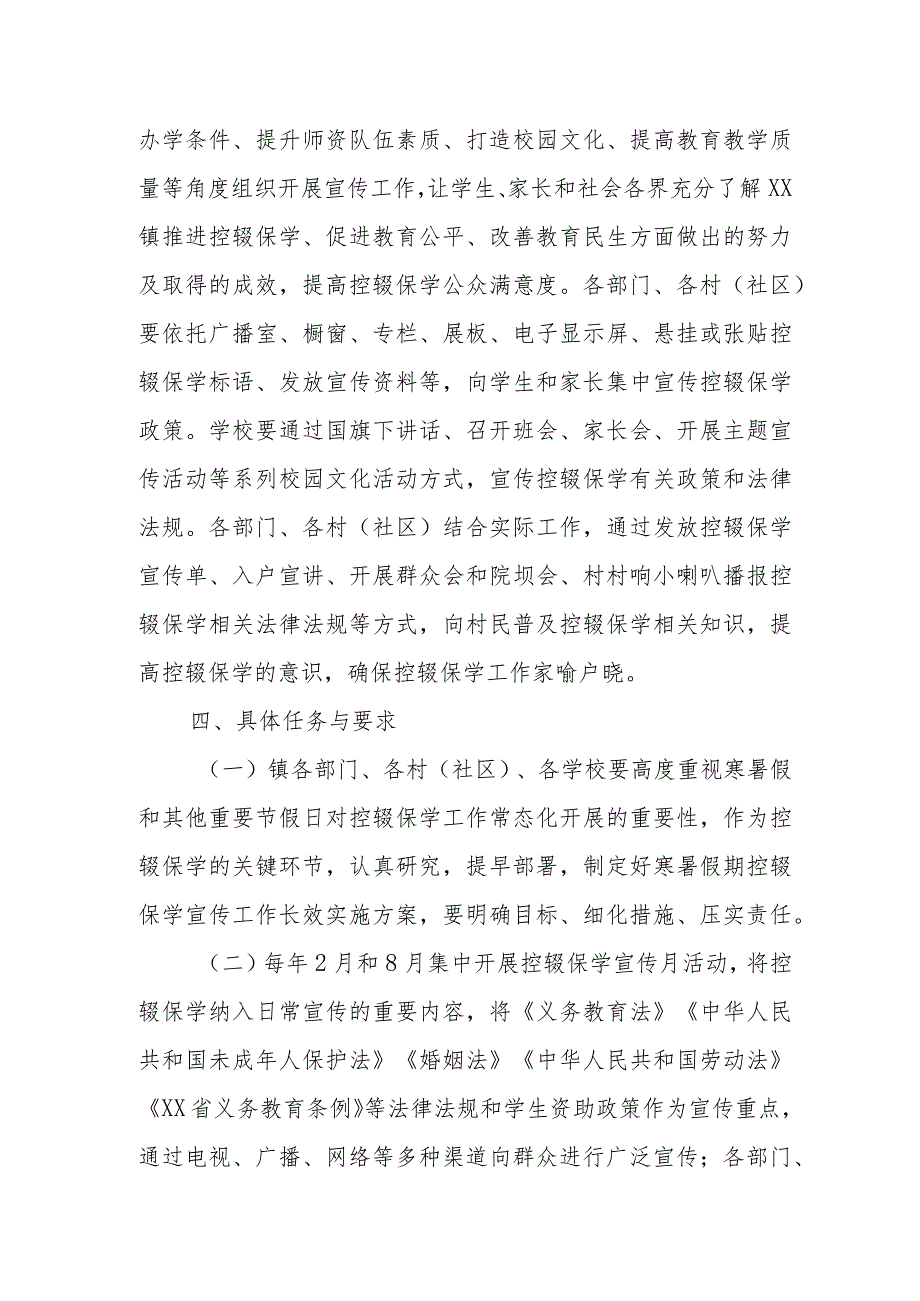 办学条件、提升师资队伍素质、打造校园文化、提高教育教学质
量等角度组织开展宣传工作，让学生、家长和社会各界充分了解 XX
镇推进控辍保学、促进教育公平、改善教育民生方面做出的努力
及取得的成效，提高控辍保学公众满意度。各部门、各村（社区）
要依托广播室、橱窗、专栏、展板、电子显示屏、悬挂或张贴控
辍保学标语、发放宣传资料等，向学生和家长集中宣传控辍保学
政策。学校要通过国旗下讲话、召开班会、家长会、开展主题宣
传活动等系列校园文化活动方式，宣传控辍保学有关政策和法律
法规。各部门、各村（社区）结合实际工作，通过发放控辍保学
宣传单、入户宣讲、开展群众会和院坝会、村村响小喇叭播报控
辍保学相关法律法规等方式，向村民普及控辍保学相关知识，提
高控辍保学的意识，确保控辍保学工作家喻户晓。
四、具体任务与要求
（一）镇各部门、各村（社区）、各学校要高度重视寒暑假
和其他重要节假日对控辍保学工作常态化开展的重要性，作为控
辍保学的关键环节，认真研究，提早部署，制定好寒暑假期控辍
保学宣传工作长效实施方案，要明确目标、细化措施、压实责任。
（二）每年 2 月和 8 月集中开展控辍保学宣传月活动，将控
辍保学纳入日常宣传的重要内容，将《义务教育法》《中华人民
共和国未成年人保护法》《婚姻法》《中华人民共和国劳动法》
《XX 省义务教育条例》等法律法规和学生资助政策作为宣传重点，
通过电视、广播、网络等多种渠道向群众进行广泛宣传；各部门、